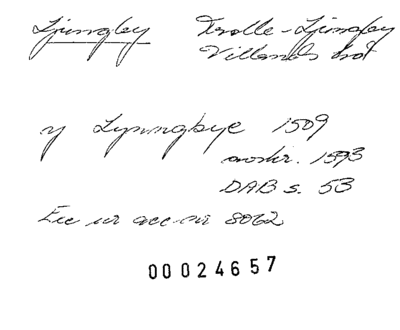 Ljungby Trolle-Ljungby
Villands hd
y Lywngbye 1509
avskr. 1593
DAB s. 53
Exc ur acc nr 8062
00024657